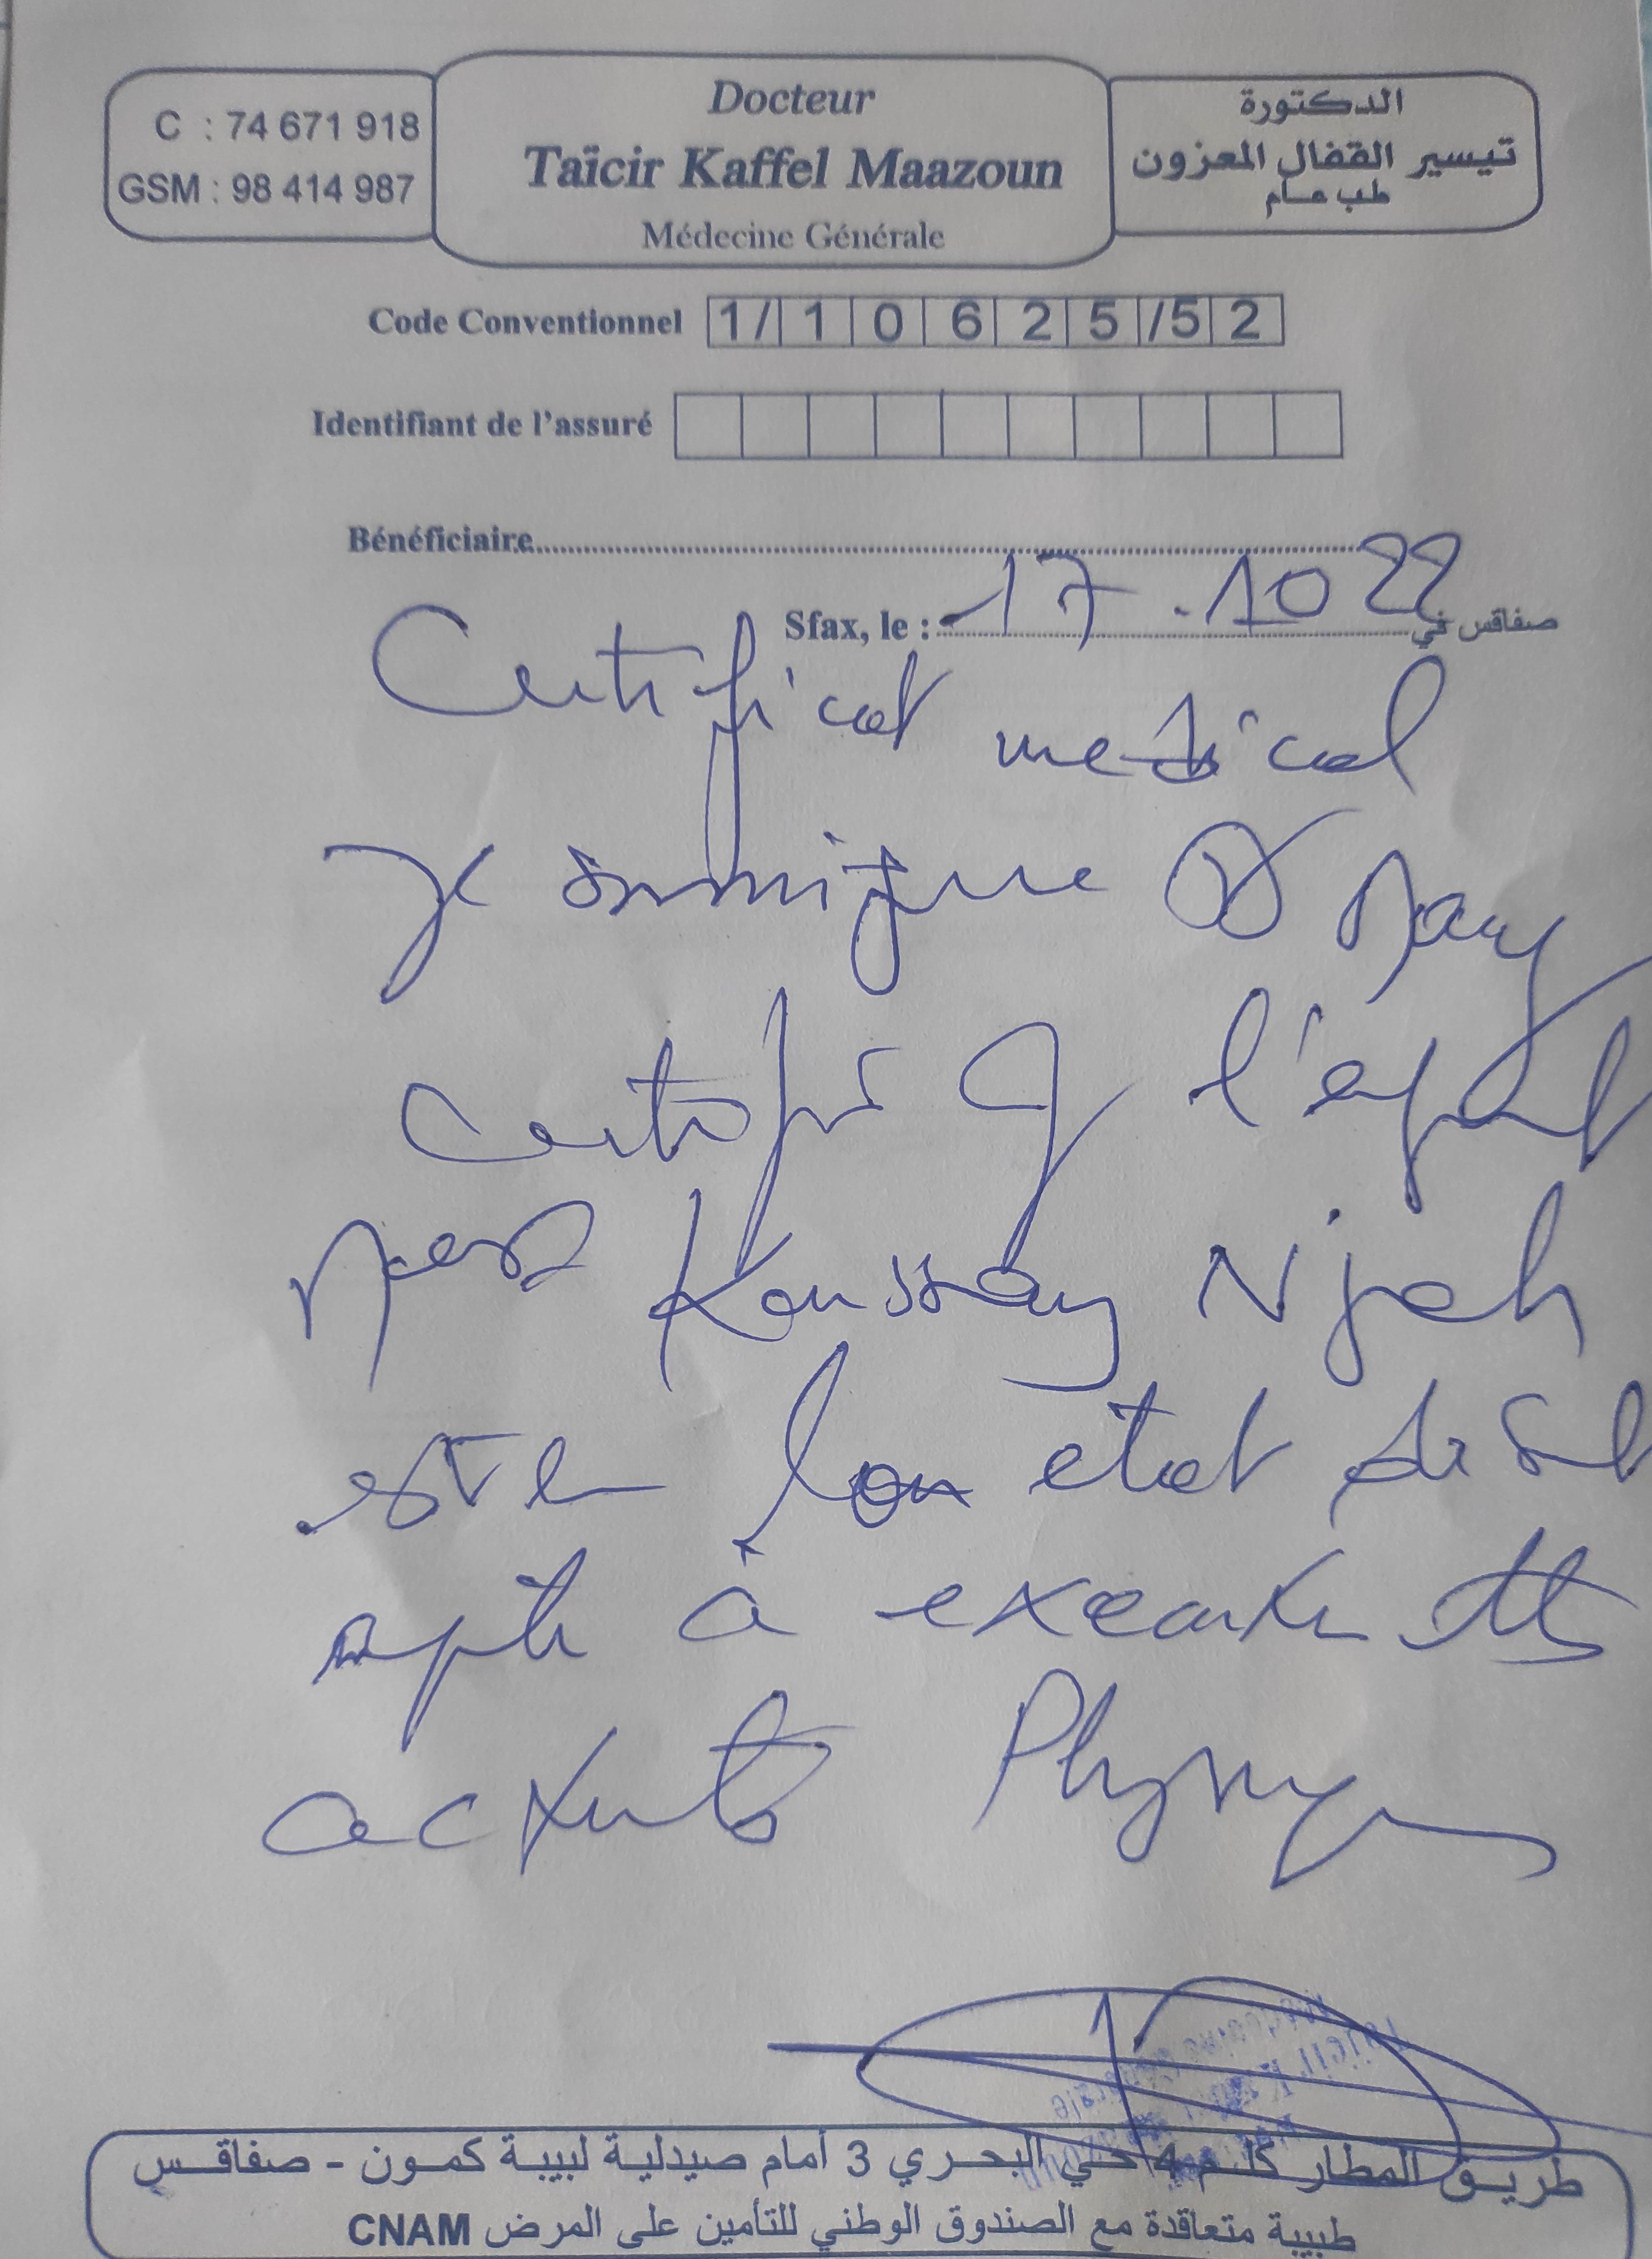 C : 74 671 918
GSM : 98 414 987
Docteur
Taïcir Kaffel Maazoun
Médecine Générale
الدكتورة
تيسير القفال المعزون
طب عام
Code Conventionnel 1/10625/52
Identifiant de l'assuré
Bénéficiaire
Sfax, le : 17.10 22 صفاقس في
Certificat medical
Je soussignée Dr
Certifie q l'enfant
Koussay Njah
est en bon etat de
apte à executer
Physiq
طريق المطار كلم 4 حي البحري 3 أمام صيدلية لبيبة كمون - صفاقس
طبيبة متعاقدة مع الصندوق الوطني للتأمين على المرض CNAM